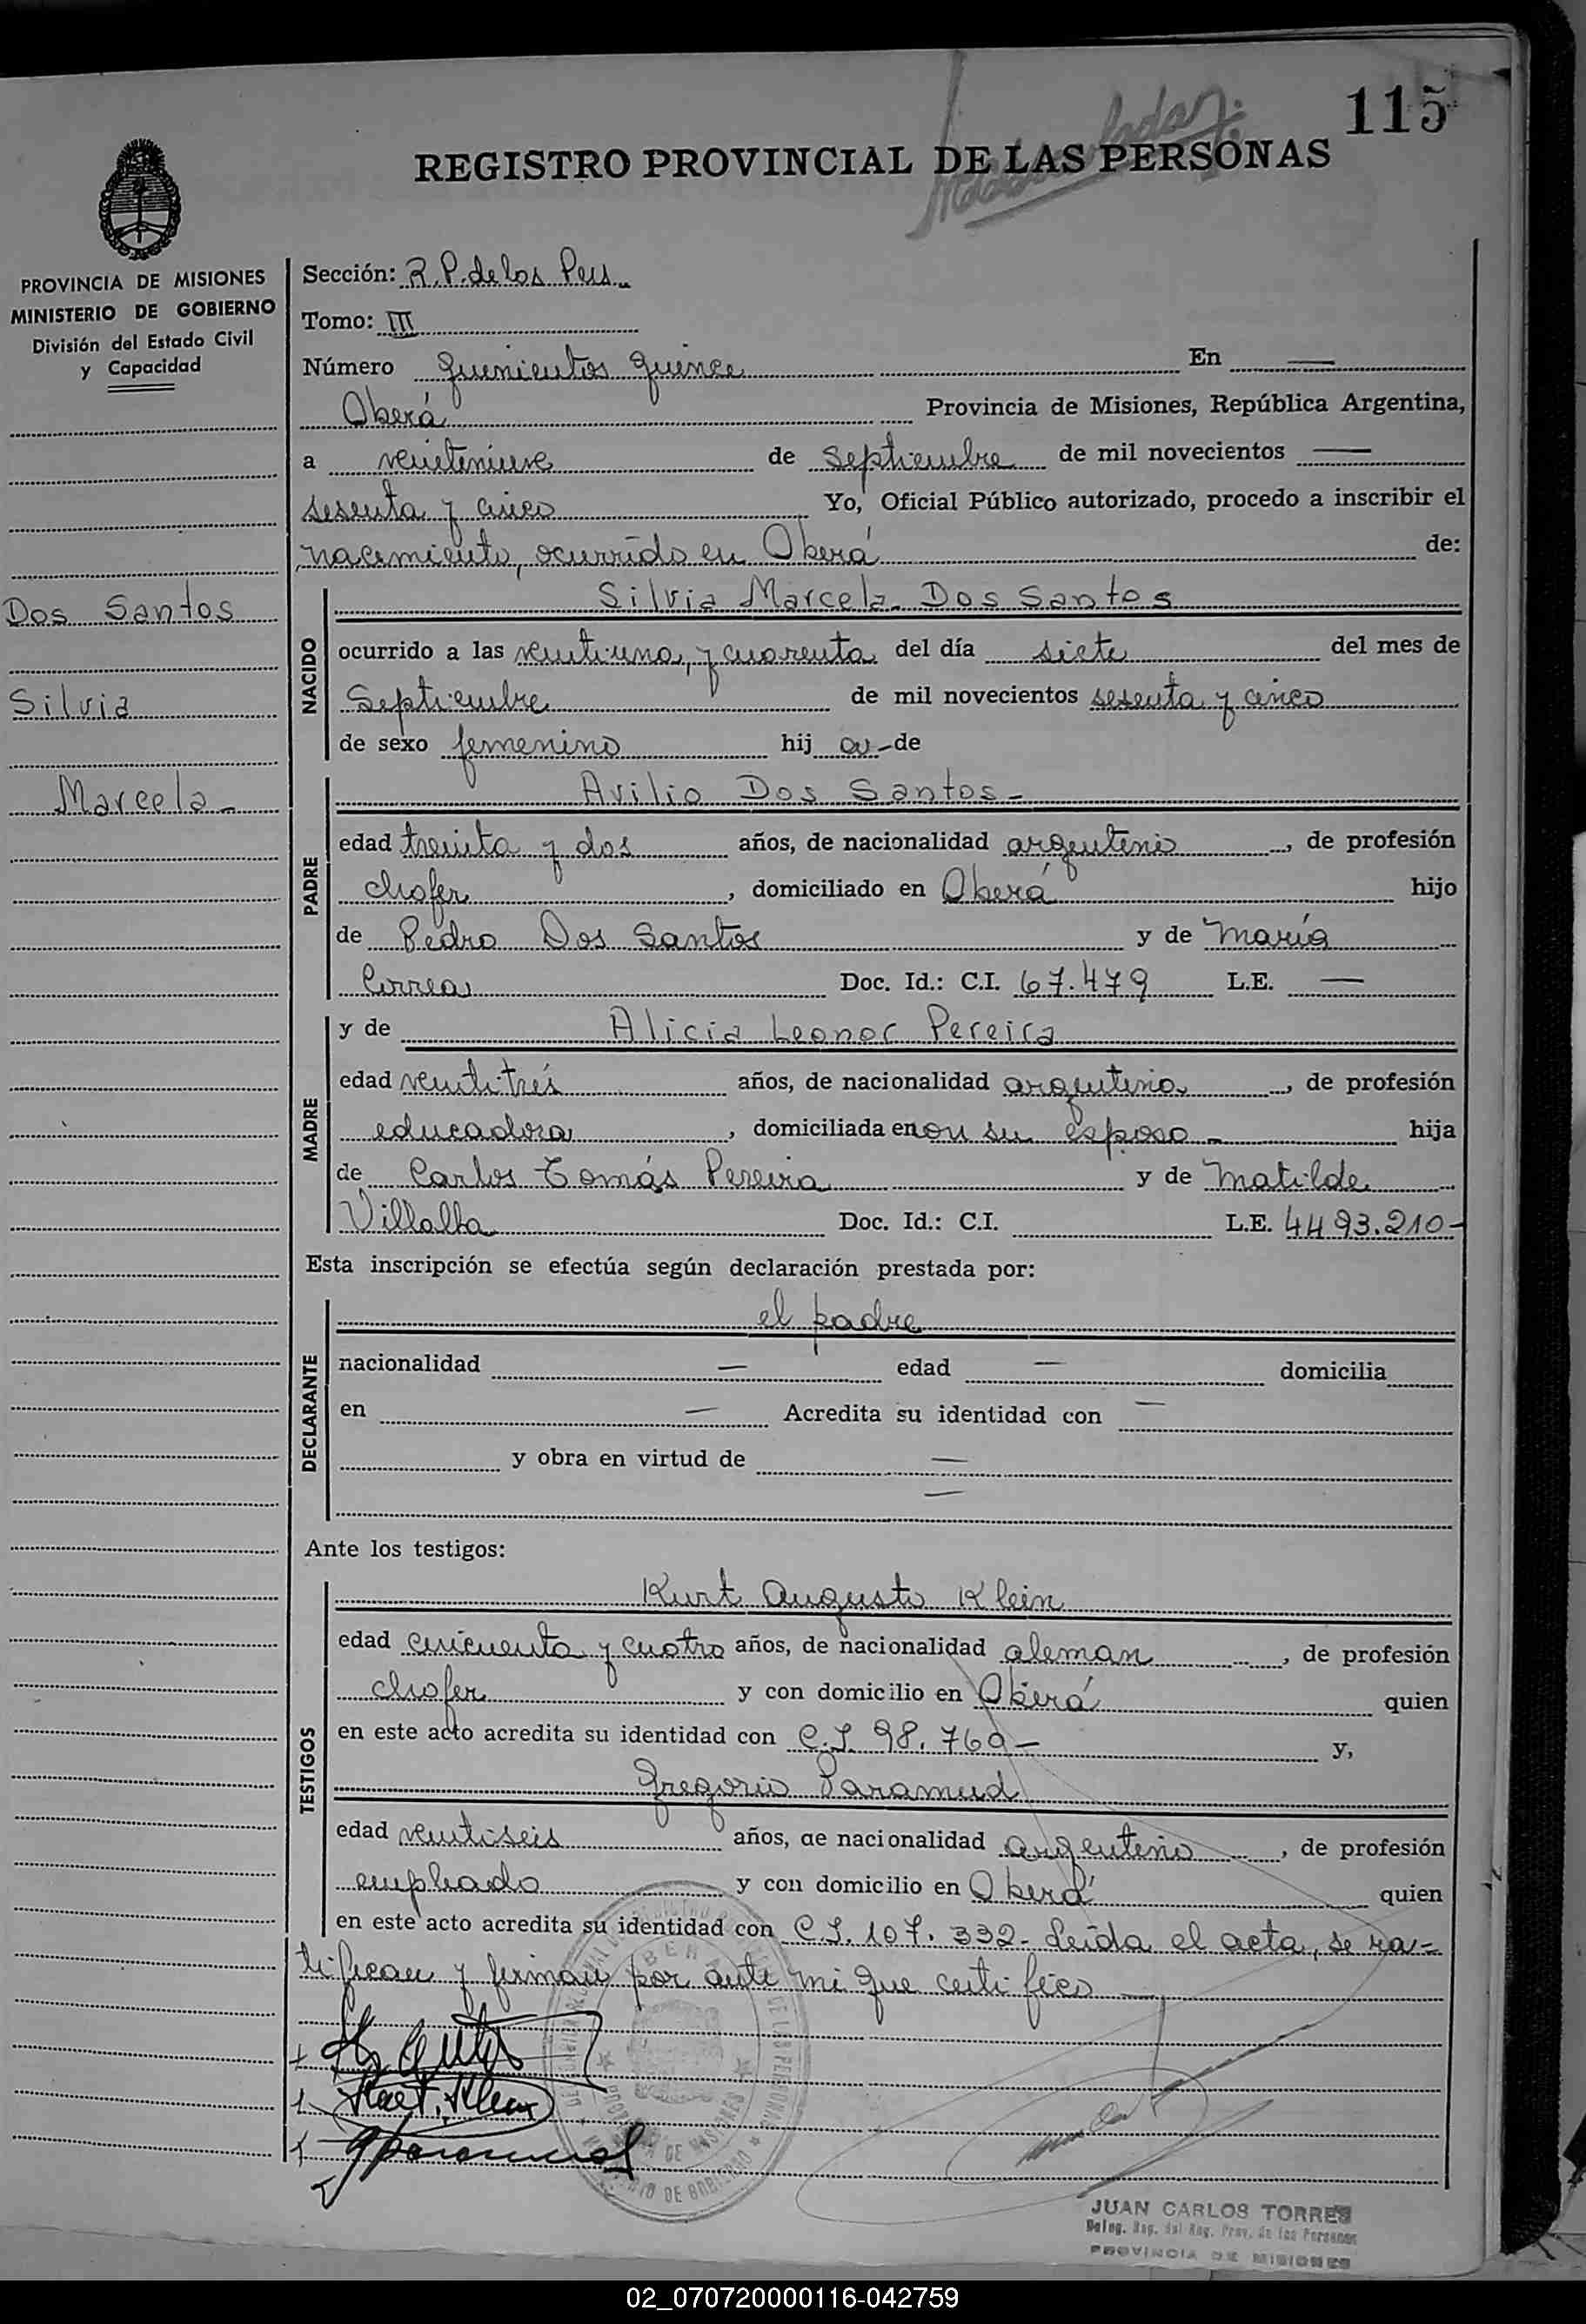 115
REGISTRO PROVINCIAL DE LAS PERSONAS
PROVINCIA DE MISIONES
MINISTERIO DE GOBIERNO
División del Estado Civil
y Capacidad
Dos Santos
Silvia
Marcela -
Sección: R. P. de las Pers.
Tomo: III
Número quinientos quince En —
Oberá Provincia de Misiones, República Argentina,
a veintenueve de septiembre de mil novecientos —
sesenta y cinco Yo, Oficial Público autorizado, procedo a inscribir el
nacimiento, ocurrido en Oberá de:
NACIDO
Silvia Marcela Dos Santos
ocurrido a las veintiuna, y cuarenta del día siete del mes de
Septiembre de mil novecientos sesenta y cinco
de sexo femenino hij a - de
PADRE
Avilio Dos Santos -
edad treinta y dos años, de nacionalidad argentino, de profesión
chofer, domiciliado en Oberá hijo
de Pedro Dos Santos y de María
Correa Doc. Id.: C.I. 67.479 L.E. —
MADRE
y de Alicia Leonor Pereira
edad veintitrés años, de nacionalidad argentina, de profesión
educadora, domiciliada en con su esposo - hija
de Carlos Tomás Pereira y de Matilde
Villalba Doc. Id.: C.I. L.E. 4493.210-
Esta inscripción se efectúa según declaración prestada por:
DECLARANTE
el padre
nacionalidad — edad — domicilia
en — Acredita su identidad con —
y obra en virtud de —
—
Ante los testigos:
TESTIGOS
Kurt Augusto Klein
edad cincuenta y cuatro años, de nacionalidad aleman, de profesión
chofer y con domicilio en Oberá quien
en este acto acredita su identidad con C.I. 98.760 - y,
Gregorio Paramud
edad veintiseis años, de nacionalidad argentino, de profesión
empleado y con domicilio en Oberá quien
en este acto acredita su identidad con C.I. 107.332- Leída el acta, se ra-
tifican y firman por ante mi que certifico —
JUAN CARLOS TORRES
Deleg. Rep. del Reg. Prov. de las Personas
PROVINCIA DE MISIONES
02_070720000116-042759